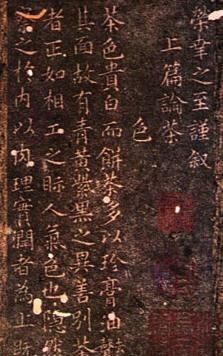 榮幸之至謹叙
上篇論茶
色
茶色貴白而餅茶多以珍膏油
其面故有青黃紫黑之異善別茶
者正如相工之眎人氣色也隱然
察之於內以肉理實潤者為上